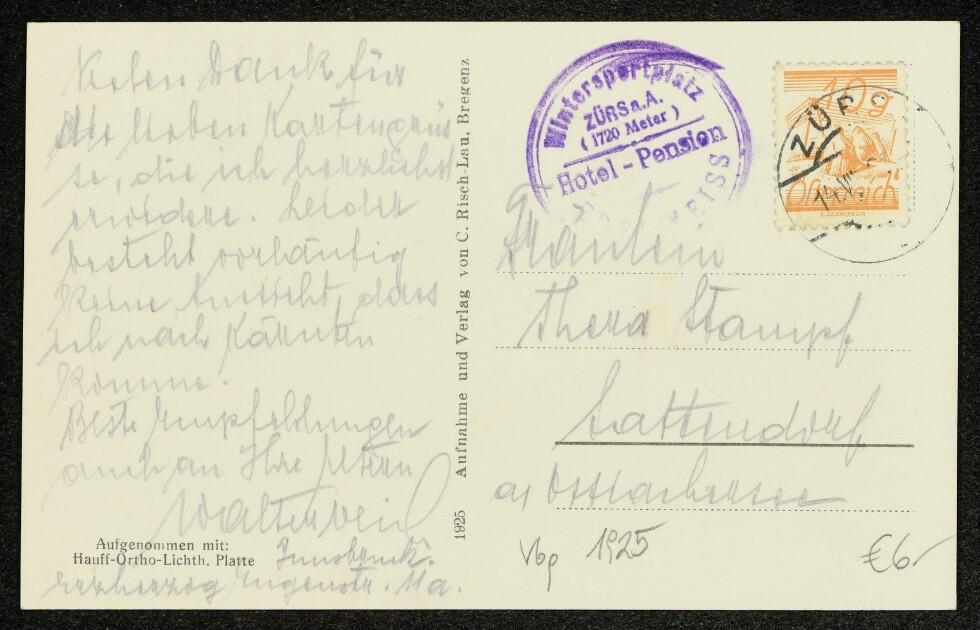 Vielen Dank für
die lieben Kartengrüs
se, die ich herzlichst
erwidere. Leider
besteht vorläufig
keine Aussicht, dass
ich nach Kärnten
komme.
Beste Empfehlungen
auch an Ihre Eltern
Aufgenommen mit:
Hauff-Ortho-Lichth. Platte
Innsbruck.
Erzherzog Eugenstr. 11a.
1925 Aufnahme und Verlag von C. Risch-Lau, Bregenz
Wintersportplatz
ZÜRS a. A.
( 1720 Meter )
Hotel-Pension
10g
Österreich
ZÜRS
Fräulein
Thera Stampf
Sattendorf
a/ Ossiachersee
Vbg 1925
€6.-